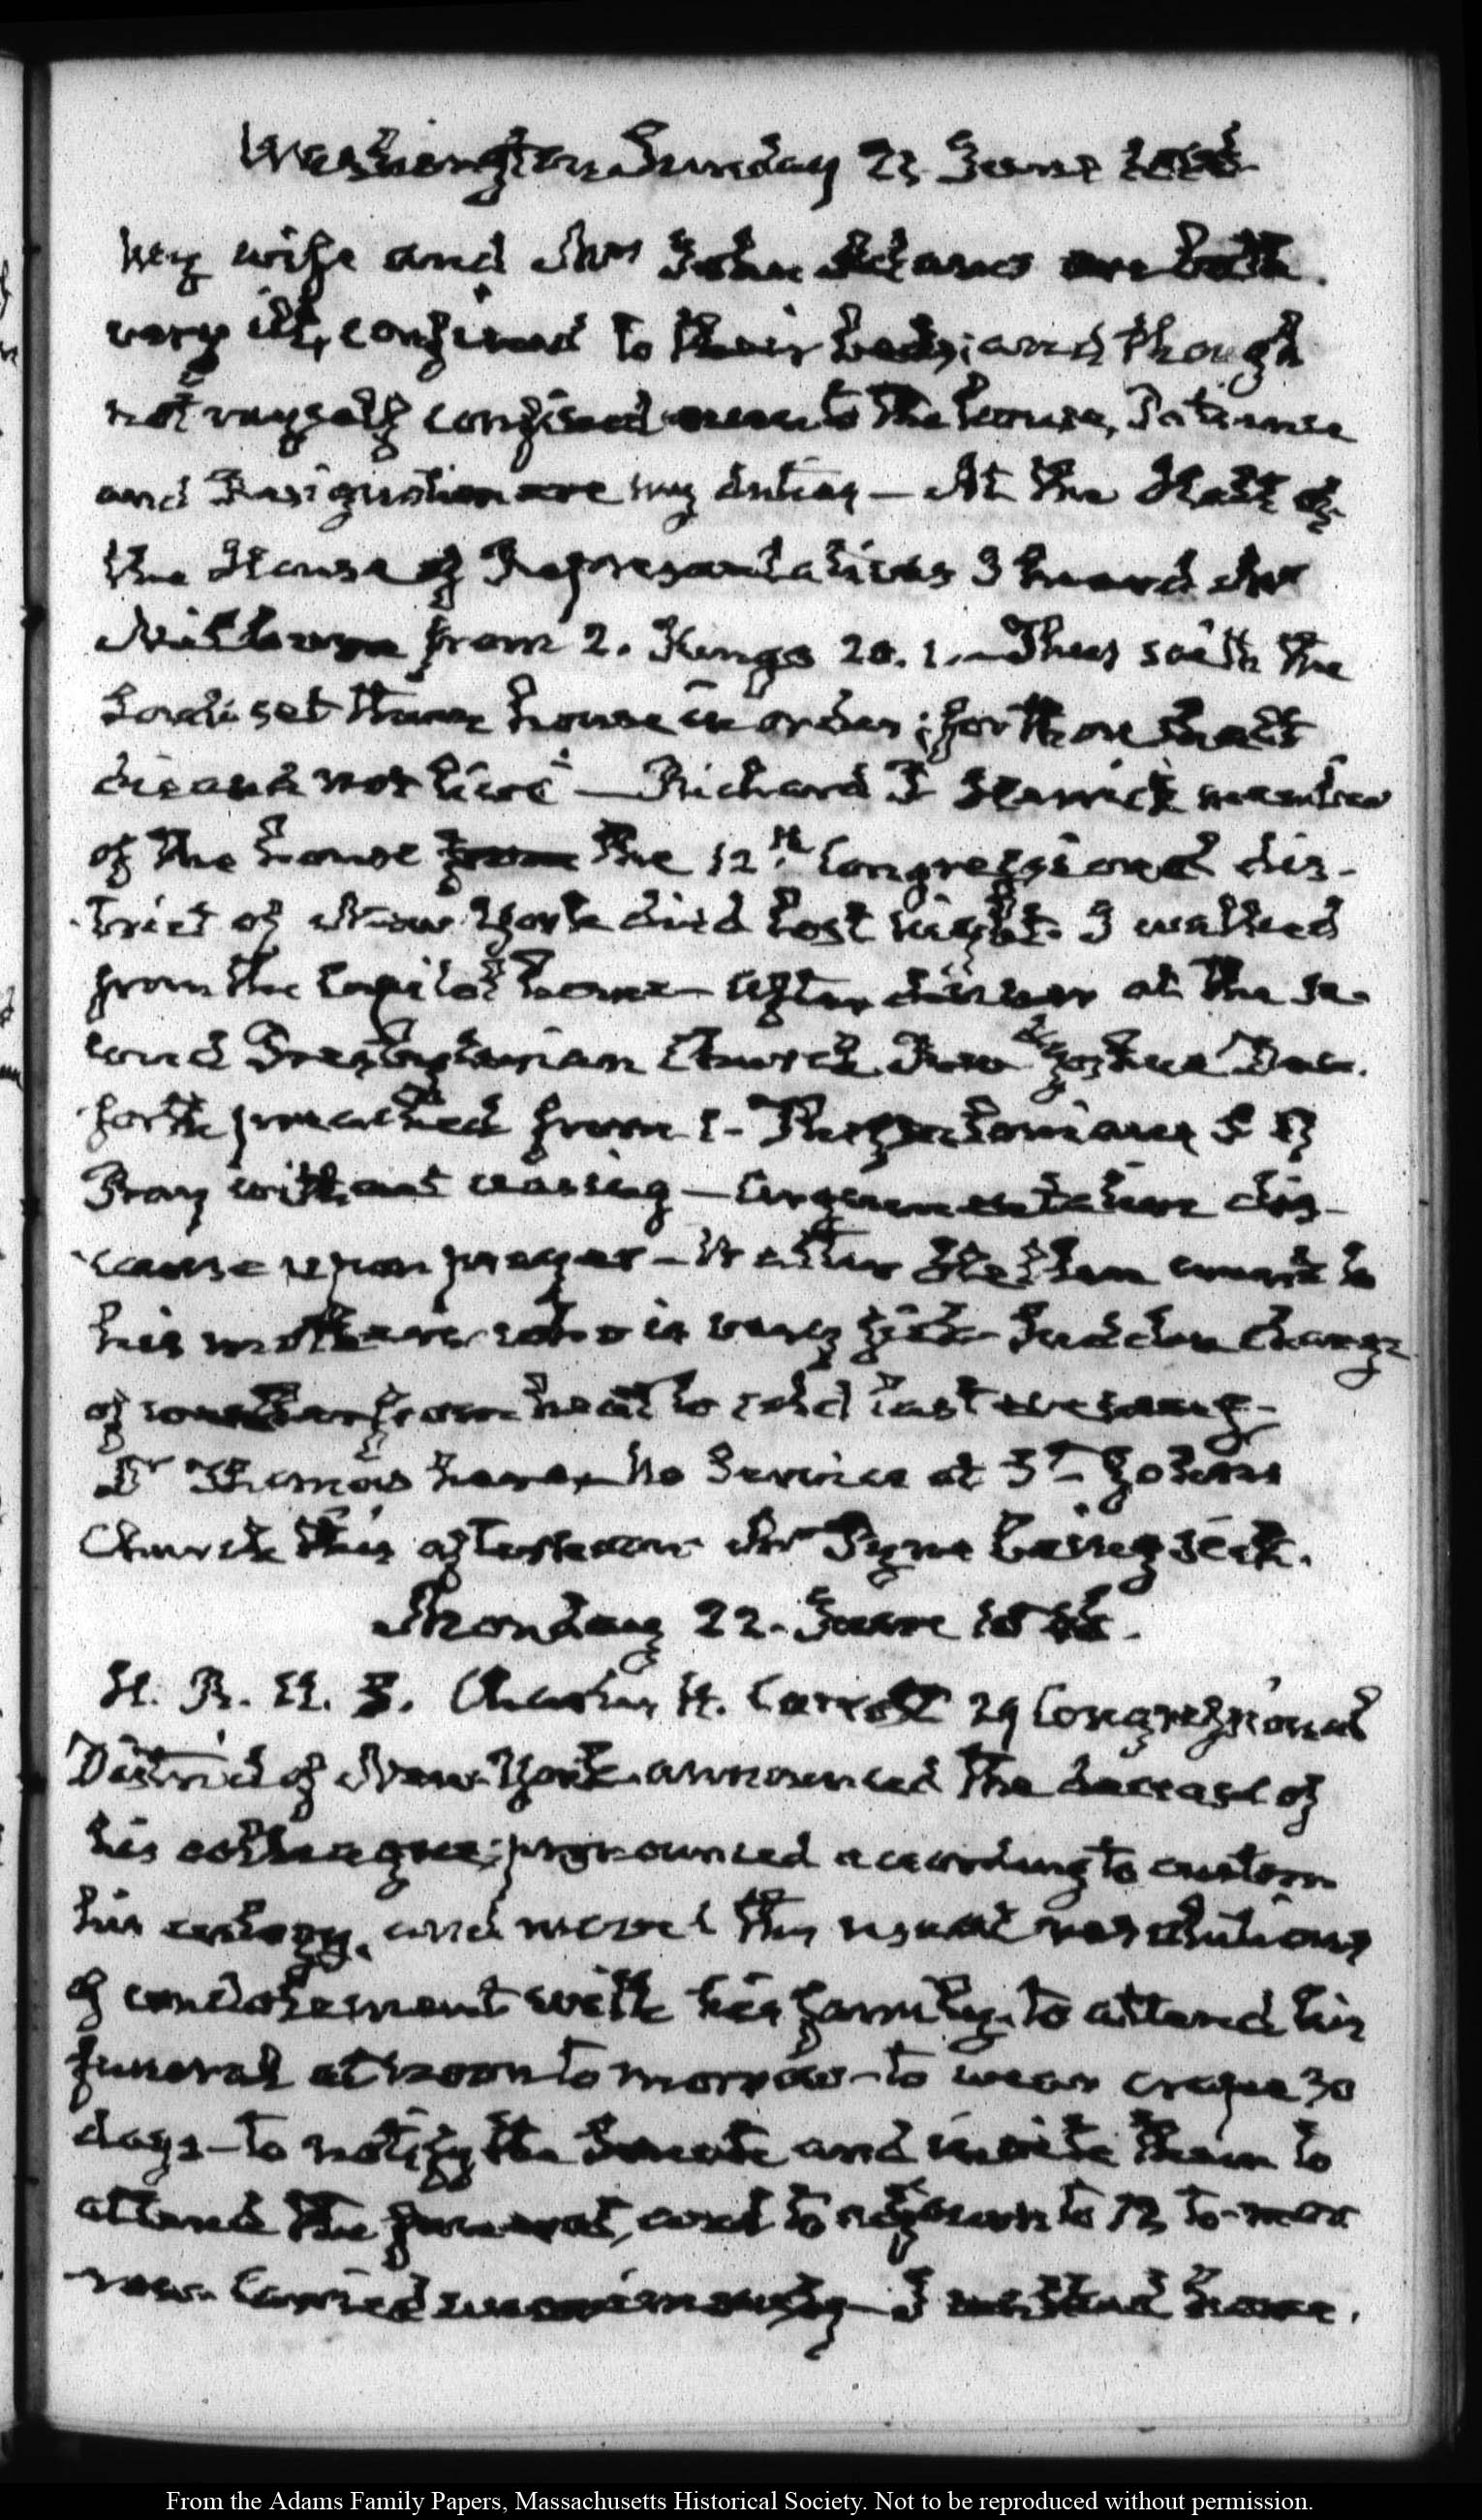 Washington Sunday 21 June 1846.
My wife and Mrs John Adams are both
very ill, confined to their beds; and though
not myself confined even to the house, Patience
and Resignation are my duties — At the Hall of
the House of Representatives I heard Mr
Milburn from 2. Kings 20. 1. — Thus saith the
Lord: set thine house in order; for thou shalt
die and not live — Richard P Herrick member
of the house from the 12th Congressional dis-
trict of New York died last night. I walked
from the Capitol home — after dinner at the se-
cond Presbyterian Church Mr Joshua Dan-
forth preached from 1. Thessalonians 5 17
Pray without ceasing — Argumentation dis-
course upon prayer — Walter Hellen came to
his mother who is very sick. Sudden change
of weather from heat to cold last evening —
Dr Thomas here. No Service at St. Johns
Church this afternoon Mr Pyne being sick.
Monday 22. June 1846.
H. R. U. S. Charles H. Carroll 29 Congressional
District of New-York announced the decease of
his colleague; pronounced according to custom
his eulogy, and moved the usual resolutions
of condolement with his family. to attend his
funeral at noon to morrow — to wear crape 30
days — to notify the Senate and invite them to
attend the funeral, and to adjourn to 12 to-mor-
row. Carried unanimously — I walked home.
From the Adams Family Papers, Massachusetts Historical Society. Not to be reproduced without permission.